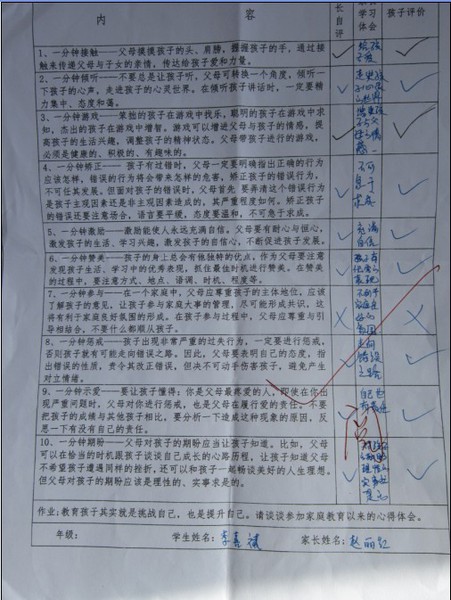 内 容
长自评
学习体会
孩子评价
1、一分钟接触——父母摸摸孩子的头、肩膀，握握孩子的手，通过接
触来传递父母与子女的亲情，传达给孩子爱和力量。
2、一分钟倾听——不要总是让孩子听，父母可转换一个角度，倾听一
下孩子的心声，走进孩子的心灵世界。在倾听孩子讲话时，一定要精
力集中、态度和蔼。
3、一分钟游戏——笨拙的孩子在游戏中找乐，聪明的孩子在游戏中求
知，杰出的孩子在游戏中增智。游戏可以增进父母与孩子的情感，提
高孩子的生活兴趣，调整孩子的精神状态。父母带孩子进行的游戏，
必须是健康的、积极的、有趣味的。
4、一分钟矫正—— 孩子有过错时，父母一定要明确指出正确的行为
应该怎样，错误的行为将会带来怎样的危害。矫正孩子的错误行为，
不可任其发展，但面对孩子的错误时，父母首先 要弄清这个错误行为
是孩子主观因素还是非主观因素造成的，其严重程度如何。矫正孩子
的错误还要注意场合，语言要平缓，态度要温和，不可急于求成。
5、一分钟激励——激励能使人永远充满自信。父母要有耐心与恒心，
激发孩子的生活、学习兴趣，激发孩子的自信心，不断促进孩子发展。
6、一分钟赞美——孩子的身上总会有他独特的优点。作为父母要注意
发现孩子生活、学习中的优秀表现，抓住最佳时机进行赞美。在赞美
的过程中，要注意方式、地点、语调、时机、程度等。
7、一分钟参与——在一个家庭中，父母应尊重孩子的主体地位，应该
了解孩子的意见，让孩子参与家庭大事的管理，尽可能形成共识，这
将有利于家庭良好氛围的形成。在孩子参与过程中，父母应尊重与引
导相结合，不要什么都顺从孩子。
8、一分钟惩戒——孩子出现非常严重的过失行为，一定要进行惩戒，
否则孩子就有可能走向错误之路。因此，父母要表明自己的态度，指
出错误的性质，责令其改正错误，但决不可动手伤害孩子，避免产生
对立情绪。
9、一分钟示爱——要让孩子懂得：你是父母最疼爱的人，即使在你出
现严重问题时，父母对你进行惩戒，也是父母在履行爱的责任。不要
把孩子的成绩与其他孩子相比，要分析一下造成这种现象的原因，反
思一下有没有自己的责任。
10、一分钟期盼——父母对孩子的期盼应当让孩子知道。比如，父母
可以在恰当的时机跟孩子谈谈自己成长的心路历程，让孩子知道父母
不希望孩子遭遇同样的挫折，还可以和孩子一起畅谈美好的人生理想。
但父母对孩子的期盼应该是理性的、实事求是的。
不可
急于
求成
充满
自信
走向
错误
之路
阅
作业：教育孩子其实就是挑战自己，也是提升自己。请谈谈参加家庭教育以来的心得体会。
年级： 学生姓名：李喜 家长姓名：赵丽红